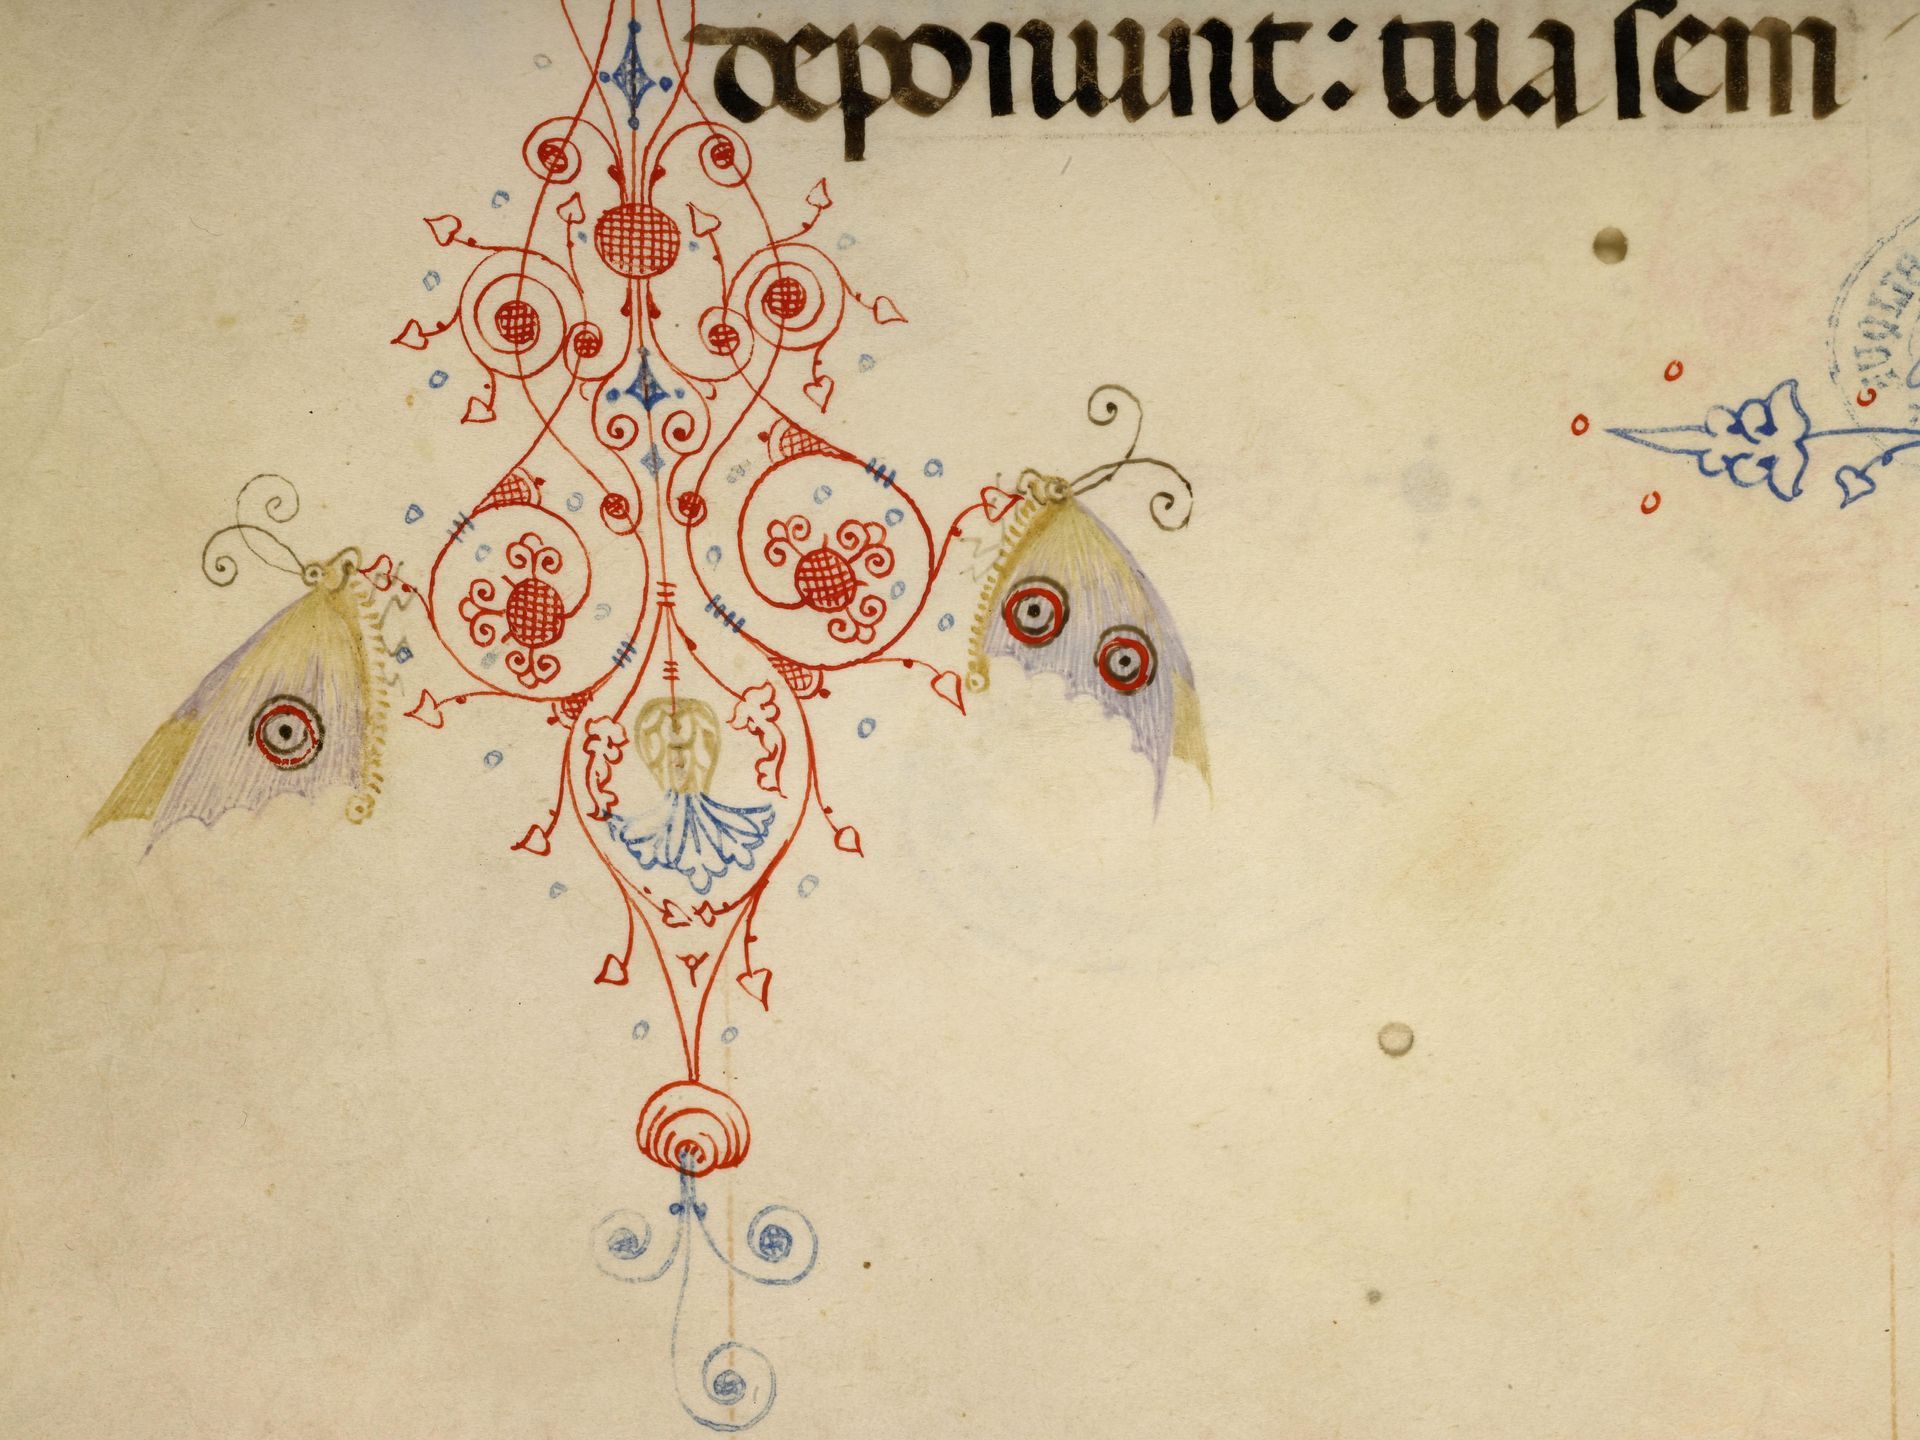 deponunt: tua sem